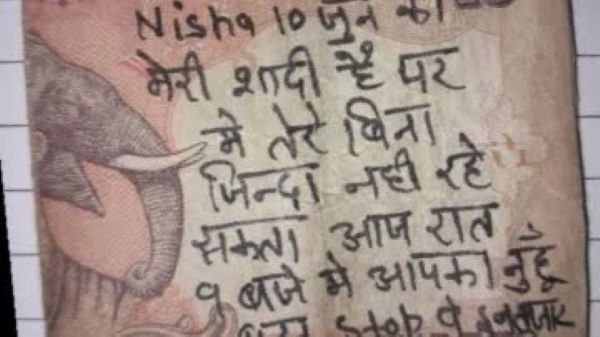 Nisha 10 जून को
मेरी शादी है पर
मे तेरे बिना
जिन्दा नही रहे
सकता आज रात
9 बजे मे आपका
बस stop पे इन्तजार